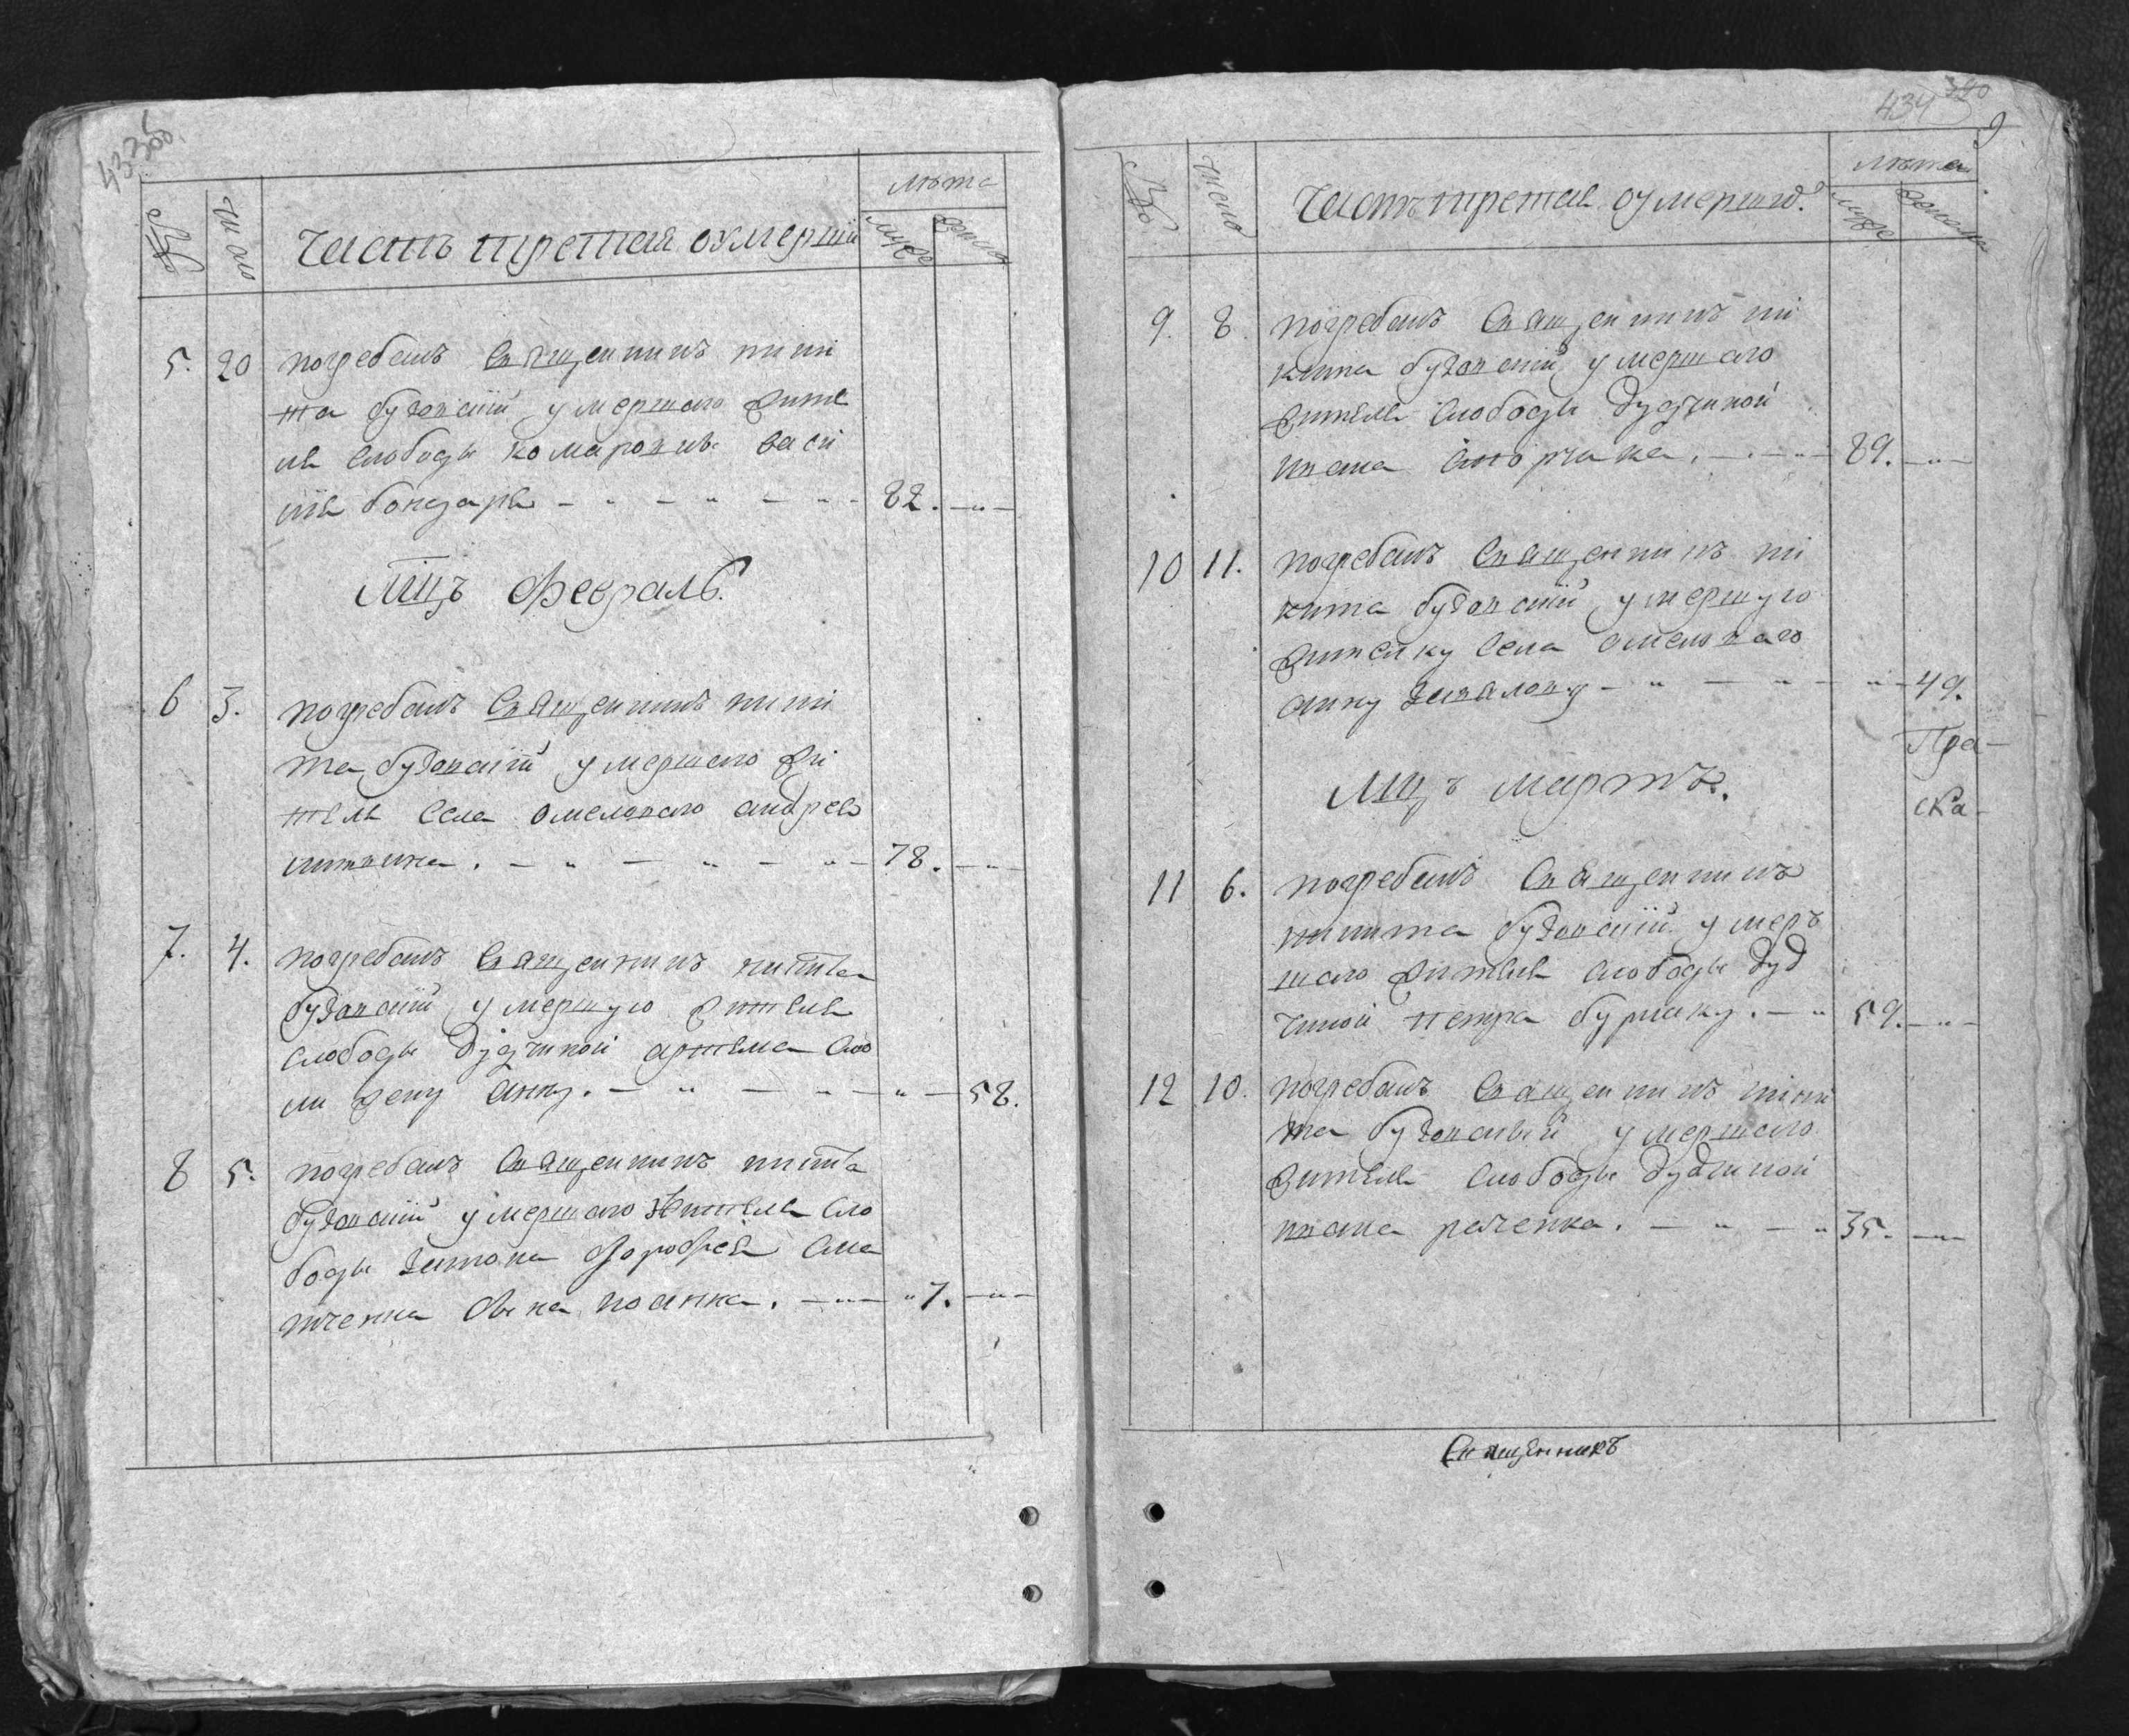 433
№
число
часть третая оумерши
лѣта
муже
женска
5. 20 погребалъ Священникъ ники
та будянскій умершаго жите
ля слободы комаровки васи
лія бондаря 82.
Мцъ Февраль
6 3. погребалъ Священникъ ники
та будянскій умершаго жи
теля села омеловаго андрея
литвина. 78.
7. 4. погребалъ Священникъ никита
будянскій умершую жителя
слободы дудчиной артема
жену анну. 58.
8 5. погребалъ Священникъ никита
будянскій умершаго жителя сло
боды
сына 7.
434
9
№
число
часть третая оумерши
лѣта
муже
женска
9. 8 погребалъ Священникъ ни
кита будянскій умершаго
жителя слободы дудчиной
ивана 89.
10 11. погребалъ Священникъ ни
кита будянскій умершую
жителку села омеловаго
анну 49.
Пра-
Мцъ мартъ.
ска
11 6. погребалъ Священникъ
никита будянскій умер
шаго жителя слободы дуд
чиной петра бурлаку. 59.
12 10. погребалъ Священникъ ники
та будянскій умершаго
жителя слободы дудчиной
ивана 35.
Священникъ